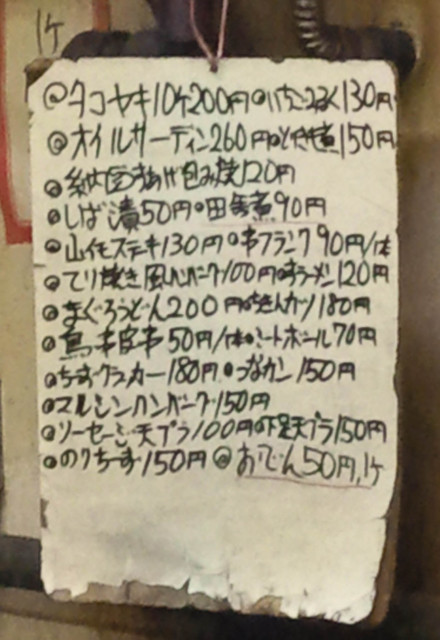 1ケ
◎タコヤキ10ケ200円◎いちごみるく130円
◎オイルサーディン260円◎どて煮150円
◎納豆あげ包み焼120円
◎しば漬50円◎田舎煮90円
◎山イモステーキ130円◎串フランク90円/1本
◎てり焼き風ハンバーグ100円◎ラーメン120円
◎まぐろうどん200円◎ちきんカツ180円
◎鳥皮串50円/1本◎ミートボール70円
◎ちーずクラッカー180円◎つなカン150円
◎マルシンハンバーグ150円
◎ソーセージ天プラ100円◎下足天プラ150円
◎のりちーず150円◎おでん50円,1ケ